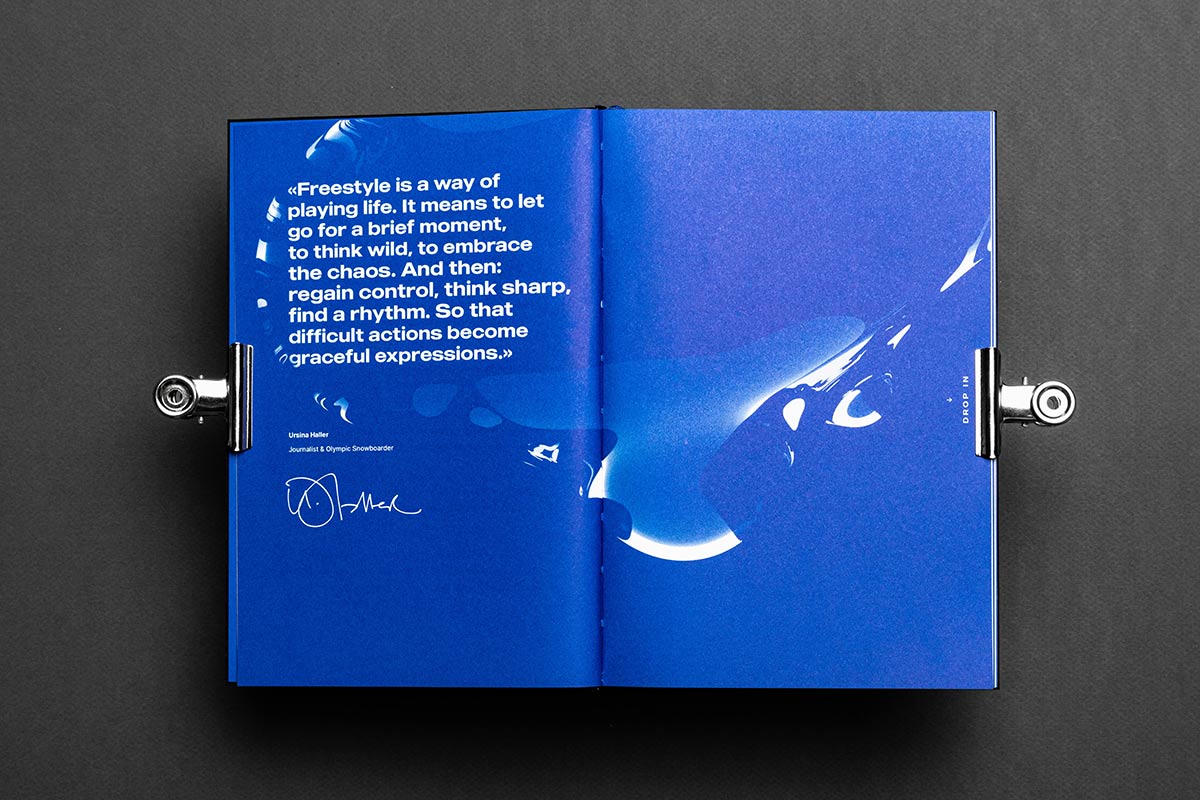 «Freestyle is a way of
playing life. It means to let
go for a brief moment,
to think wild, to embrace
the chaos. And then:
regain control, think sharp,
find a rhythm. So that
difficult actions become
graceful expressions.»
Ursina Haller
Journalist & Olympic Snowboarder
U. Haller
↓ DROP IN